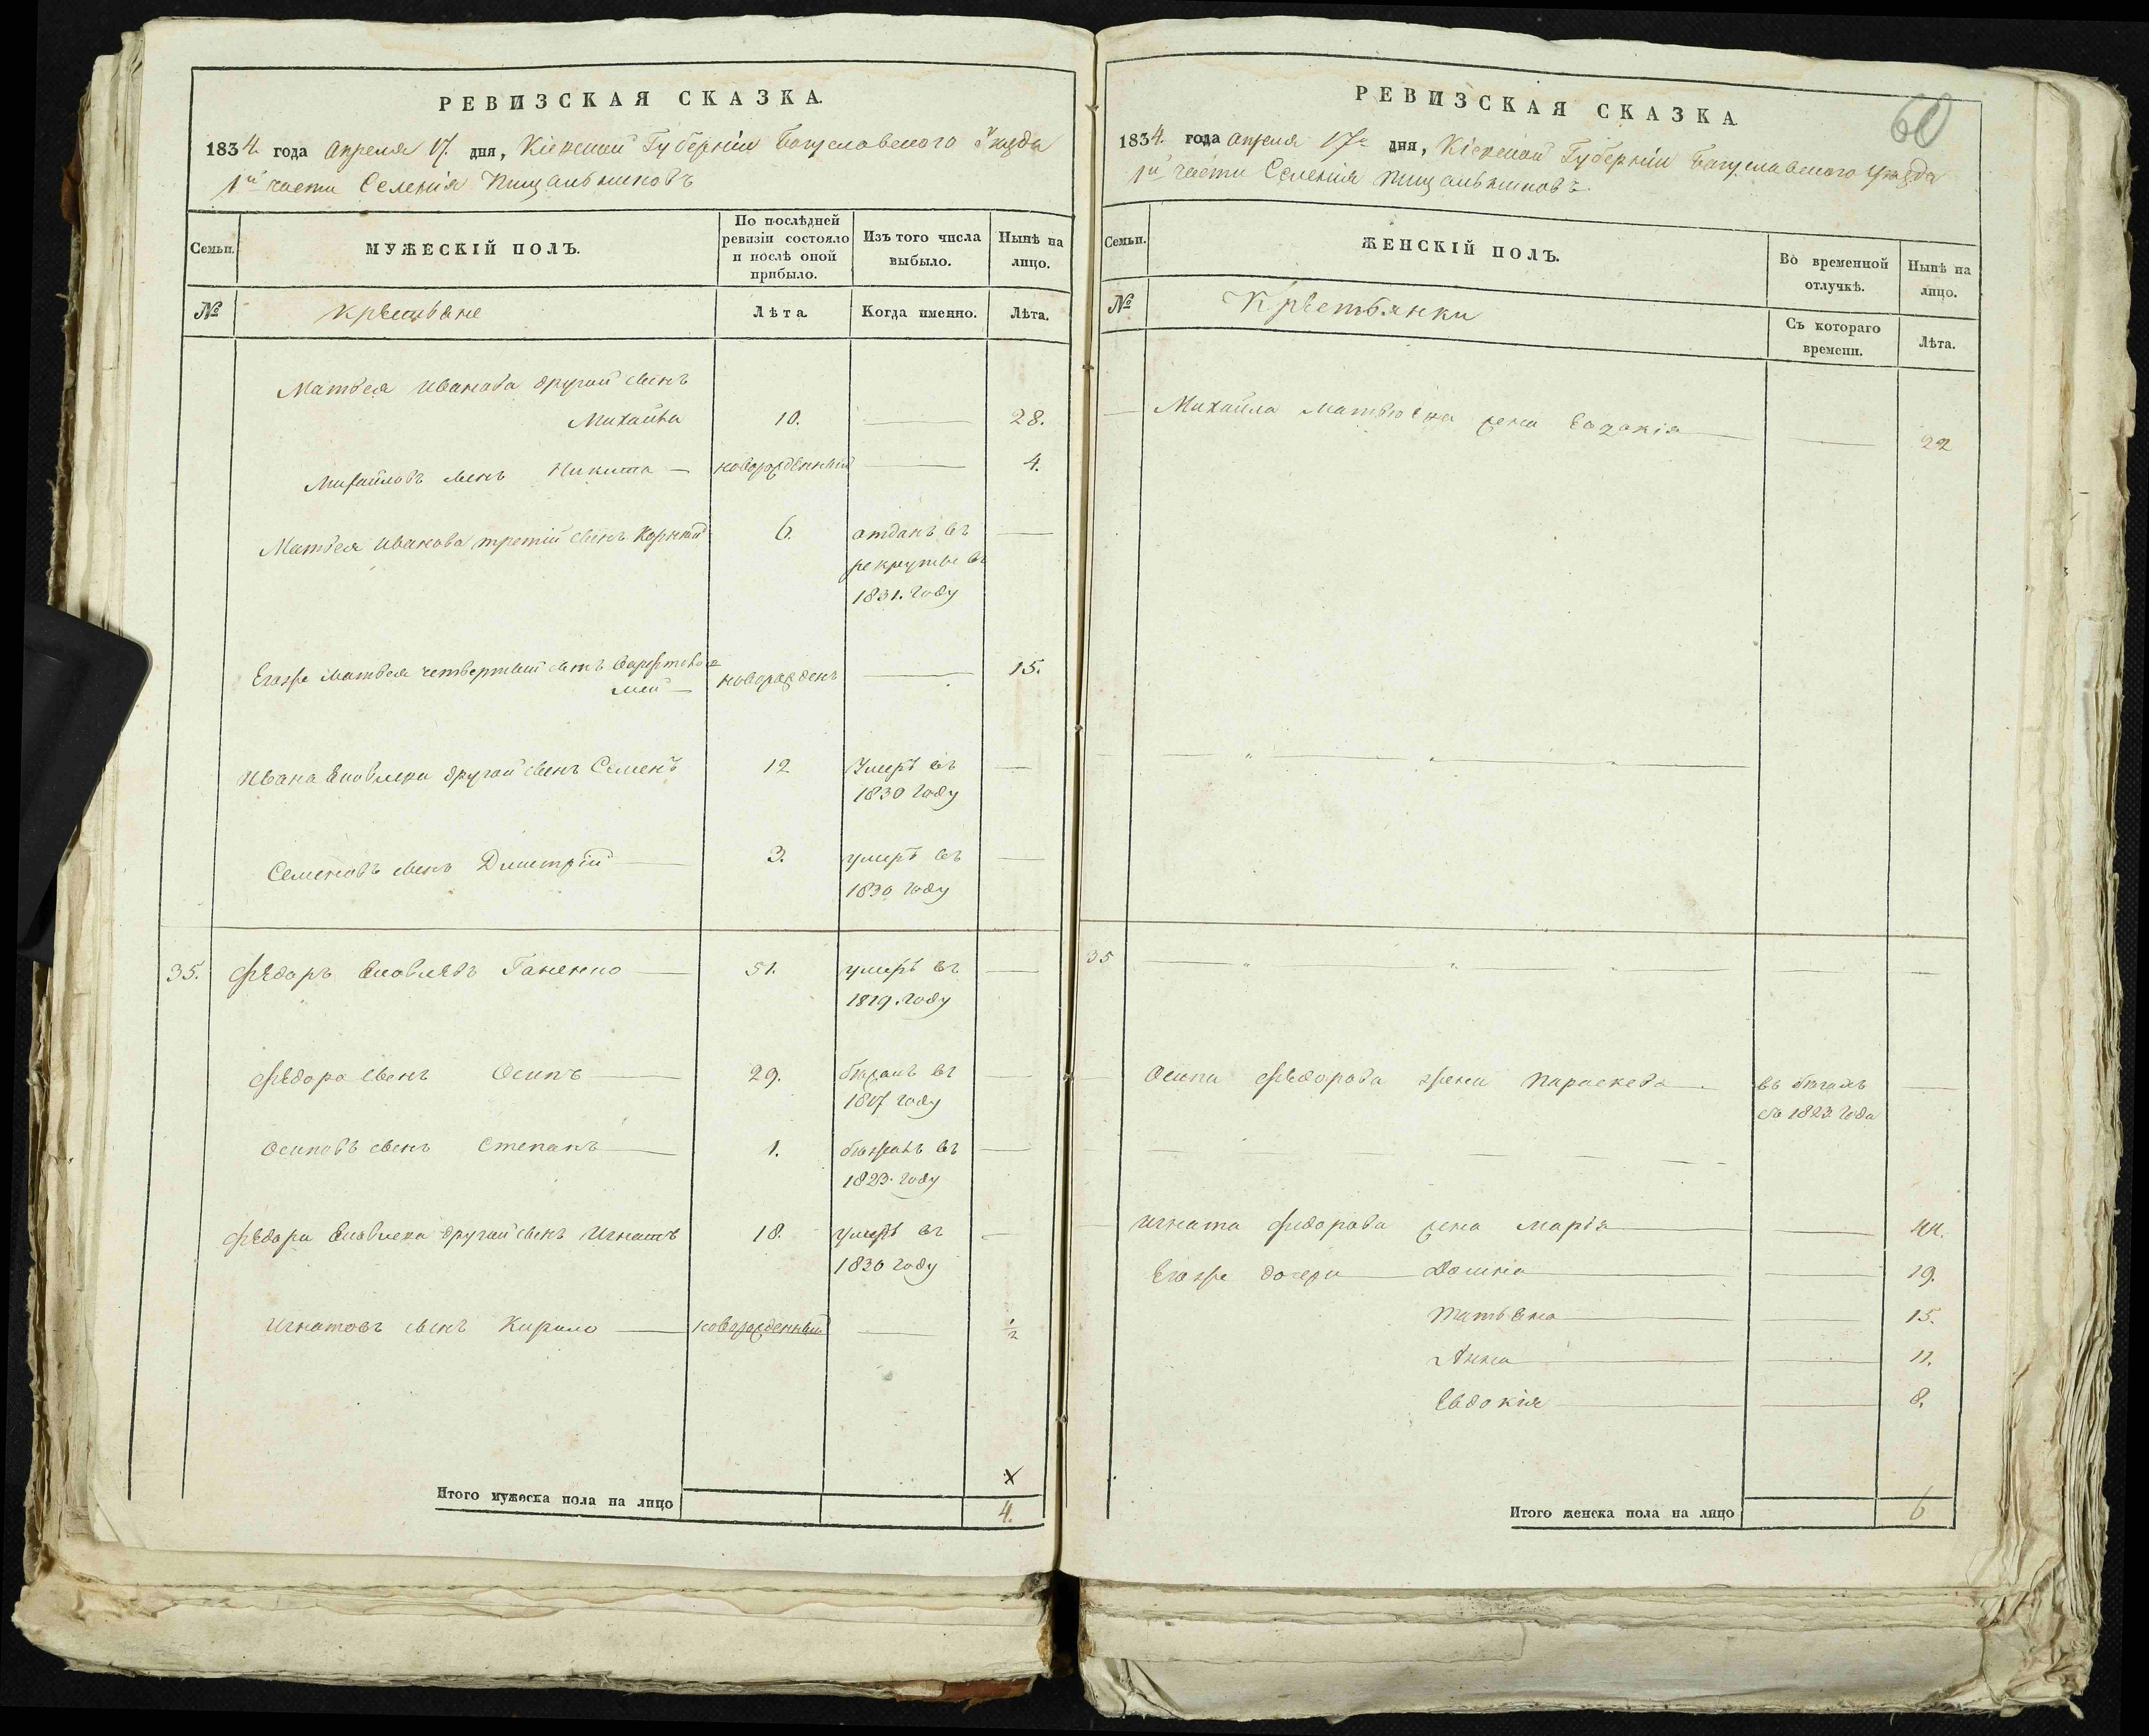 РЕВИЗСКАЯ СКАЗКА.
1834. года Апреля 17. дня, Кіевской Губерніи Богуславского Уѣзда
1й части Селенія Пищальниковъ
Семьи.
МУЖЕСКІЙ ПОЛЪ.
По послѣдней
ревизіи состояло
и послѣ оной
прибыло.
Изъ того числа
выбыло.
Нынѣ на
лицо.
№
Крестьяне
Лѣта.
Когда именно.
Лѣта.
Матвея Иванова другой сынъ
Михайла 10. 28.
Михайловъ сынъ Никита новорожденный 4.
Матвея Иванова третій сынъ Корній 6. отданъ въ
рекруты въ
1831. году
Егожъ Матвея четвертый сынъ Варфоло
мей новорожденъ 15.
Ивана Яковлева другой сынъ Семенъ 12 Умеръ въ
1830 году
Семеновъ сынъ Дмитрій 3. умеръ въ
1830 году
35. Федоръ Яковлевъ Ганенко 51. умеръ въ
1819. году
Федора сынъ Осипъ 29. бежалъ въ
1817 году
Осиповъ сынъ Степанъ 1. бежалъ въ
1823. году
Федора Яковлева другой сынъ Игнатъ 18. умеръ въ
1830 году
Игнатовъ сынъ Кирило новорожденный 1/2
Итого мужеска пола на лицо 4.
60
РЕВИЗСКАЯ СКАЗКА
1834. года Апреля 17го дня, Кіевской Губерніи Богуславского Уѣзда
1й части Селенія Пищальниковъ.
Семьи.
ЖЕНСКІЙ ПОЛЪ.
Во временной
отлучкѣ.
Нынѣ на
лицо.
№
Крестьянки
Съ котораго
времени.
Лѣта.
Михайла Матвіева жена Евдокія 22
35
Осипа Федорова жена Параскева въ бегахъ
съ 1823. года
Игната Федорова жена Марія 44.
Егожъ дочери Домнія 19.
Татьяна 15.
Анна 11.
Евдокія 8.
Итого женска пола на лицо 6